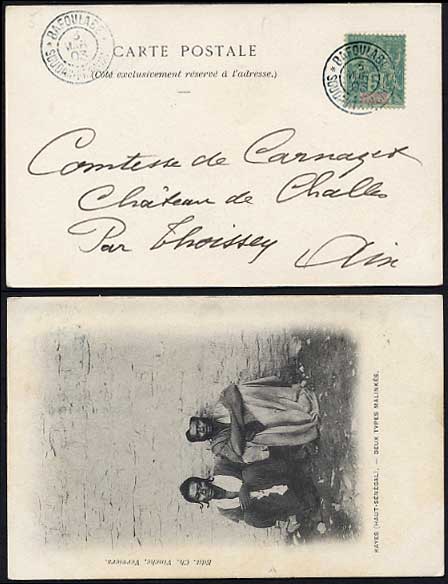 BAFOULABÉ
5
MAR
03
CARTE POSTALE
(Côté exclusivement réservé à l'adresse.)
BAFOULABÉ
5
MAR
03
5
Comtesse de Carnazet
Château de Challes
Par Thoissey
Ain
KAYES (HAUT-SÉNÉGAL). — DEUX TYPES MALINKÉS.
Edit. Ch. Vinche, Verviers.